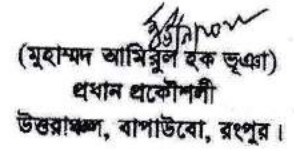 (মুহাম্মদ আমিরুল হক ভূঞা)
প্রধান প্রকৌশলী
উত্তরাঞ্চল, বাপাউবো, রংপুর।